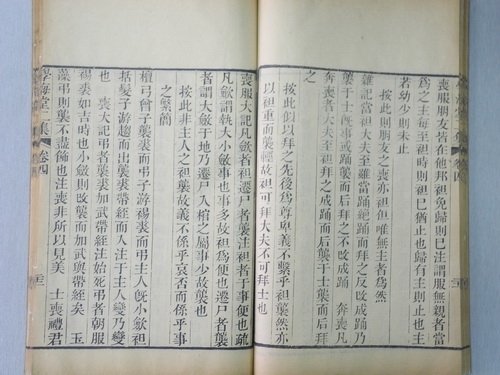 喪服朋友皆在他邦袒免歸則已注謂服無親者當
爲之主每至袒時則袒已猶止也歸有主則止也主
若幼少則未止
按此則朋友之喪亦袒但唯無主者爲然
雜記當袒大夫至雖當踊絶踊而拜之反改成踊乃
襲于士旣事成踊襲而后拜之不改成踊 奔喪凡
奔喪者大夫至袒拜之成踊而后襲于士襲而后拜
之
按此似以拜之先後爲尊卑義不繫乎袒襲然亦
以袒重而襲輕故袒可拜大夫不可拜士也
喪服大記凡斂者袒遷尸者襲注袒者于事便也疏
凡斂謂執大小斂事也事多故袒爲便也遷尸者襲
者謂大斂于地乃遷尸入棺之屬事少故襲也
按此非主人之袒襲故義不係乎哀否而係乎事
之繁簡
檀弓曾子襲裘而弔子游裼裘而弔主人旣小斂袒
括髮子游趨而出襲裘帶絰而入注于主人變乃變
也 喪大記弔者襲裘加武帶絰注始死弔者朝服
裼裘如吉時也小斂則改襲而加武與帶絰矣 玉
藻弔則襲不盡飾也注喪非所以見美 士喪禮君
學海堂二集 卷四 三三